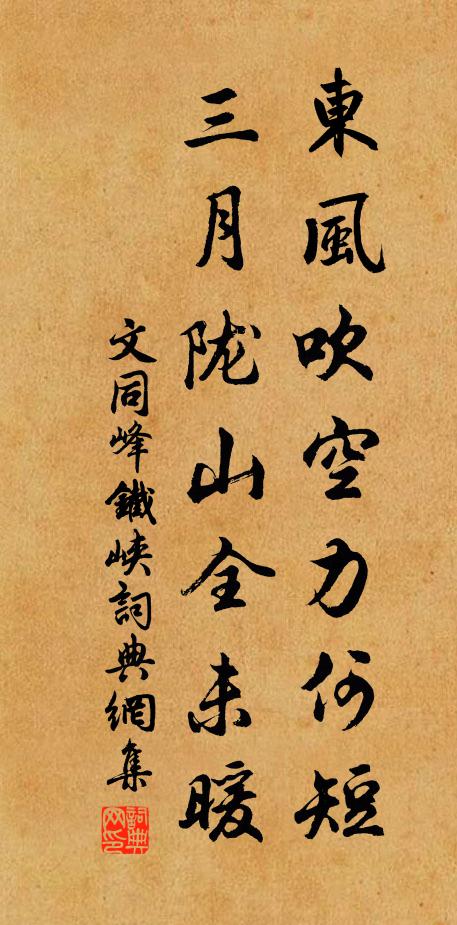 東風吹空力何短
三月陇山全未暖
文同峰鐵峽詞典網集
詞典网印